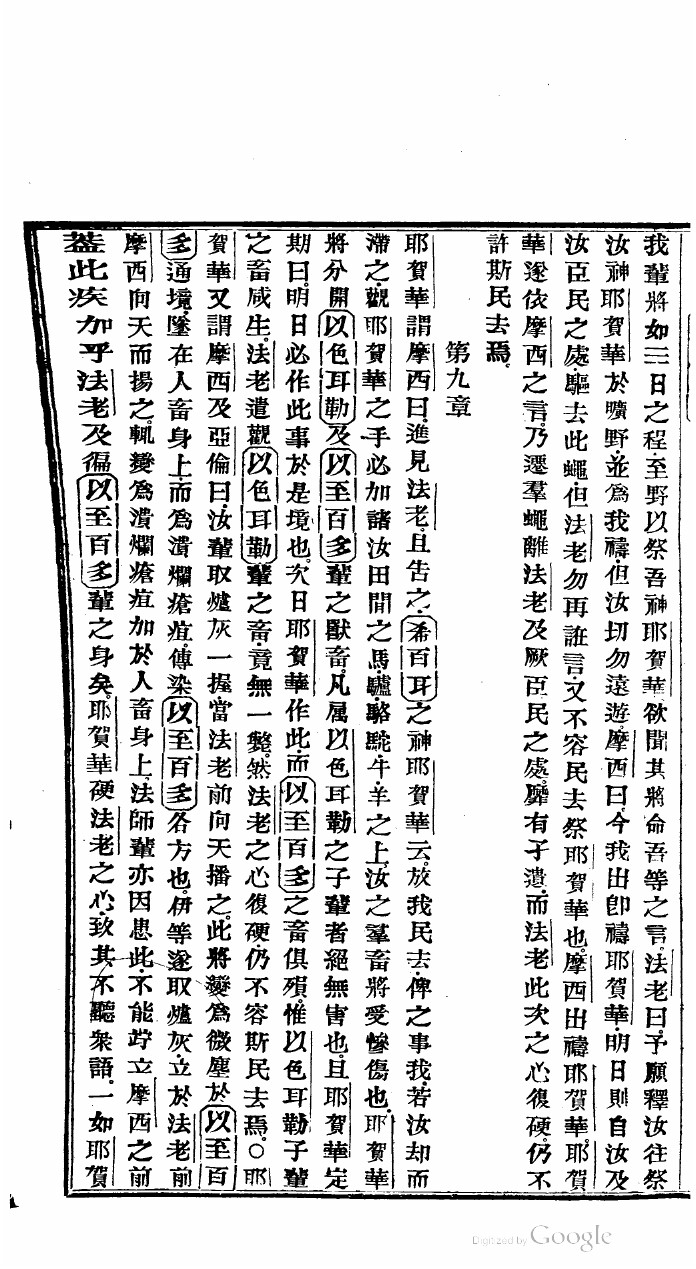 我輩將如三日之程至野以祭吾神耶賀華欲聞其將命吾等之言法老曰予願釋汝往祭
汝神耶賀華於曠野並爲我禱但汝切勿遠遊摩西曰今我出卽禱耶賀華明日則自汝及
汝臣民之處驅去此蠅但法老勿再誑言又不容民去祭耶賀華也摩西出禱耶賀華耶賀
華遂依摩西之言乃遷羣蠅離法老及厥臣民之處靡有孑遺而法老此次之心復硬仍不
許斯民去焉
第九章
耶賀華謂摩西曰進見法老且告之希百耳之神耶賀華云放我民去俾之事我若汝却而
滯之觀耶賀華之手必加諸汝田間之馬驢駱駝牛羊之上汝之羣畜將受慘傷也耶賀華
將分開以色耳勒及以至百多輩之獸畜凡属以色耳勒之子輩者絕無害也且耶賀華定
期曰明日必作此事於是境也次日耶賀華作此而以至百多之畜俱殞惟以色耳勒子輩
之畜咸生法老遣觀以色耳勒輩之畜竟無一斃然法老之心復硬仍不容斯民去焉○耶
賀華又謂摩西及亞倫曰汝輩取爐灰一握當法老前向天播之此將變爲微塵於以至百
多通境墜在人畜身上而爲潰爛瘡疽傳染以至百多各方也伊等遂取爐灰立於法老前
摩西向天而揚之輒變爲潰爛瘡疽加於人畜身上法師輩亦因患此不能竚立摩西之前
葢此疾加乎法老及徧以至百多輩之身矣耶賀華硬法老之心致其不聽衆語一如耶賀
Digitized by Google